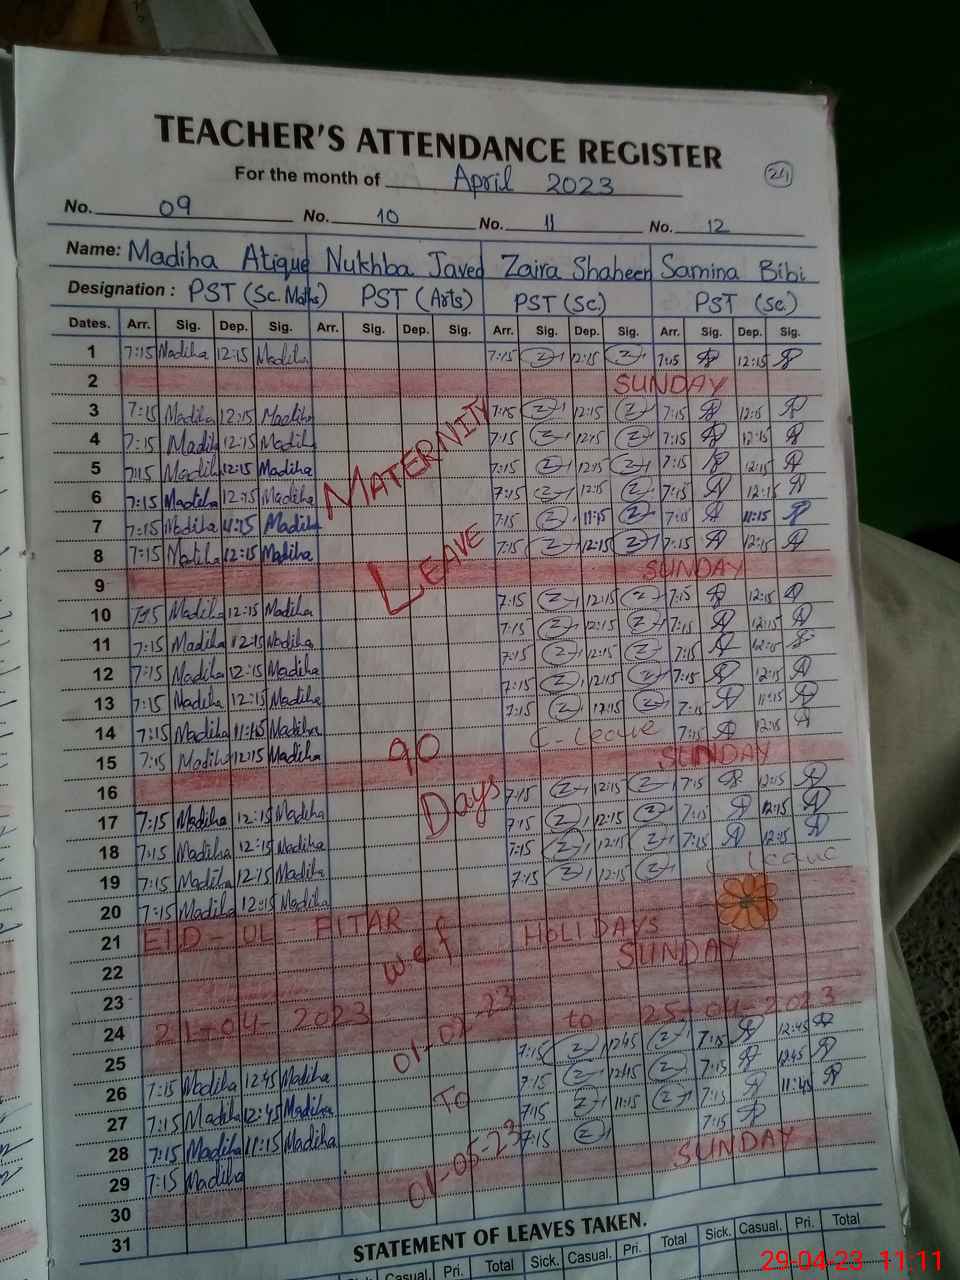 TEACHER'S ATTENDANCE REGISTER
For the month of April 2023 24
No. 09 No. 10 No. 11 No. 12
Name: Madiha Atique Nukhba Javed Zaira Shaheen Samina Bibi
Designation : PST (Sc. Maths) PST (Arts) PST (Sc.) PST (Sc.)
Dates. Arr. Sig. Dep. Sig. Arr. Sig. Dep. Sig. Arr. Sig. Dep. Sig. Arr. Sig. Dep. Sig.
1 7:15 Madiha 12:15 Madiha 7:15 12:15 7:15 12:15
2 SUNDAY
3 7:15 Madiha 12:15 Madiha 7:15 12:15 7:15 12:15
4 7:15 Madiha 12:15 Madiha 7:15 12:15 7:15 12:15
5 7:15 Madiha 12:15 Madiha 7:15 12:15 7:15 12:15
6 7:15 Madiha 12:15 Madiha 7:15 12:15 7:15 12:15
7 7:15 Madiha 11:15 Madiha 7:15 11:15 7:15 11:15
8 7:15 Madiha 12:15 Madiha 7:15 12:15 7:15 12:15
MATERNITY
LEAVE
9 SUNDAY
10 7:15 Madiha 12:15 Madiha 7:15 12:15 7:15 12:15
11 7:15 Madiha 12:15 Madiha 7:15 12:15 7:15 12:15
12 7:15 Madiha 12:15 Madiha 7:15 12:15 7:15 12:15
13 7:15 Madiha 12:15 Madiha 7:15 12:15 7:15 12:15
14 7:15 Madiha 11:15 Madiha 7:15 7:15 11:15
15 7:15 Madiha 12:15 Madiha C-Leave 7:15 12:15
90
Days
16 SUNDAY
17 7:15 Madiha 12:15 Madiha 7:15 12:15 7:15 12:15
18 7:15 Madiha 12:15 Madiha 7:15 12:15 7:15 12:15
19 7:15 Madiha 12:15 Madiha 7:15 12:15 7:15 12:15
20 7:15 Madiha 12:15 Madiha 7:15 12:15 C Leave
21 EID-UL-FITAR HOLIDAYS
22 w.e.f SUNDAY
23
24 21-04-2023 to 25-04-2023
25
01-02-23
To
01-05-23
26 7:15 Madiha 12:45 Madiha 7:15 12:45 7:15 12:45
27 7:15 Madiha 12:45 Madiha 7:15 12:45 7:15 12:45
28 7:15 Madiha 11:15 Madiha 7:15 11:15 7:15 11:45
29 7:15 Madiha 7:15 7:15
30 SUNDAY
31
STATEMENT OF LEAVES TAKEN.
Sick. Casual. Pri. Total Sick. Casual. Pri. Total Sick. Casual. Pri. Total
29-04-23 11:11